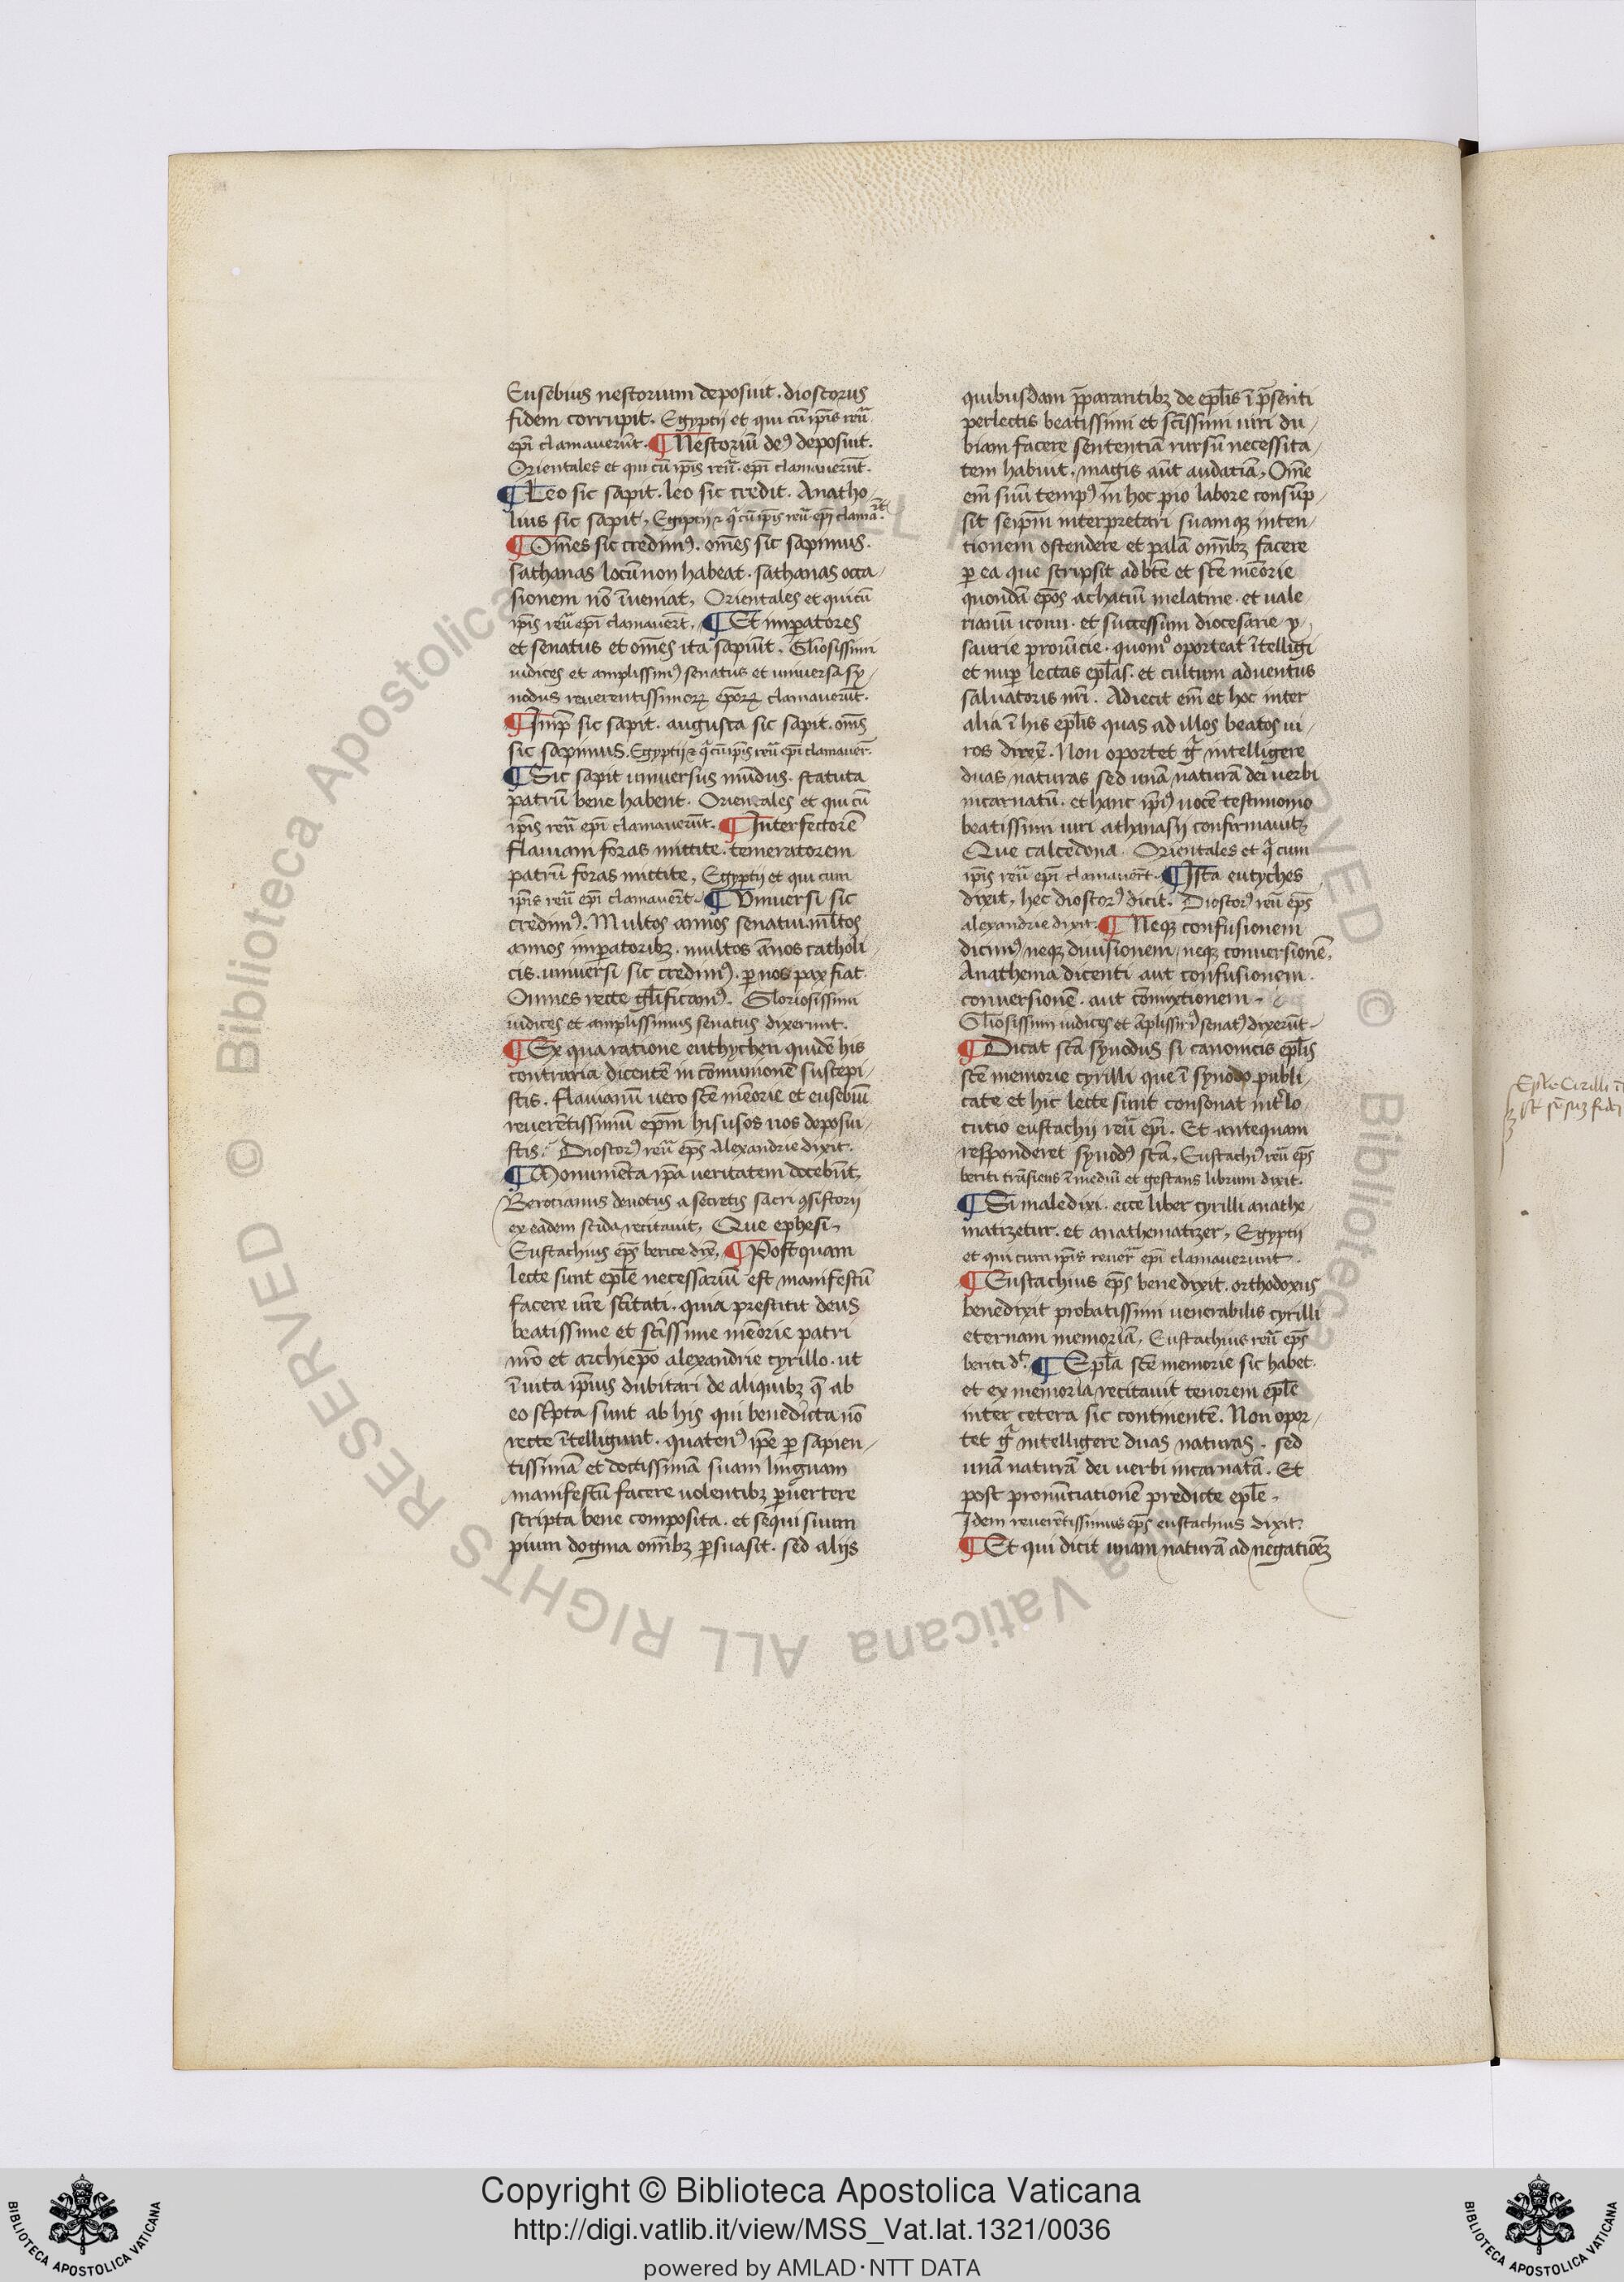 Eusebius nestorium deposuit. dioscorus
fidem corrupit. Egyptij et qui cū ip̄is reū.
ep̄i clamauerūt. ¶ Nestoriū deꝰ deposuit.
Orientales et qui cū ip̄is reū. ep̄i clamauerūt.
¶ Leo sic sapit. leo sic credit. Anatho/
lius sic sapit, Egiptij ⁊ q̇ cū ip̄is reū ep̄i clamarūt
¶ Om̄es sic credimꝰ. om̄es sic sapimus.
sathanas locū non habeat. sathanas occa/
sionem nō īueniat, Orientales et qui cū
ip̄is reū ep̄i clamauerūt. ¶ Et imꝑatores
et senatus et om̄es ita sapiūt. Gl̄iosissimi
iudices et amplissimꝰ senatus et uniuersa sy/
nodus reuerentissimoꝝ ep̄oꝝ clamauerūt.
¶ Imꝑ sic sapit. augusta sic sapit. om̄s
sic sapimus. Egyptij ⁊ q̇ cū ip̄is reū ep̄i clamauer̄.
¶ Sic sapit uniuersus mūdus. statuta
patrū bene habent. Orientales et qui cū
ip̄is reū ep̄i clamauerūt. ¶ Interfectorē
flauiani foras mittite. temeratorem
patrū foras mittite, Egyptij et qui cum
ip̄is reū ep̄i clamauer̄t. ¶ Uniuersi sic
credimꝰ. Multos annos senatui. ml̄tos
annos imꝑatoribꝫ. multos ān̄os catholi/
cis. uniuersi sic credimꝰ. ꝑ nos pax fiat.
Omnes recte gl̄ificamꝰ. Gloriosissimi
iudices et amplissimus senatus dixerunt.
¶ Ex qua ratione euthychen quidē his
contraria dicentē in cōmunionē suscepi/
stis. flauianū uero sc̄e mēorie et eusebiū
reuerētissimū ep̄m his usos uos deposui/
stis: Dioscorꝰ reū ep̄s Alexandrie dixit.
¶ Monumēta ip̄a ueritatem docebūt,
Berocianus deuotus a secretis sacri ꝯsistorij
ex eadem scida recitauit, Que ephesi.
Eustachius ep̄s berice dix̄. ¶ Postquam
lecte sunt epl̄e necessariū est manifestū
facere ur̄e sc̄itati. quia prestitit deus
beatissime et sc̄issime mēorie patri
nr̄o et archiep̄o alexandrie cyrillo. ut
ī uita ip̄ius dubitari de aliquibꝫ q̄ ab
eo sc̄pta sunt ab his qui benedicta nō
recte ītelligunt. quatenꝰ ip̄e ꝑ sapien/
tissimā et doctissimā suam linguam
manifestū facere uolentibꝫ ꝑuertere
scripta bene composita. et sequi suum
pium dogma om̄ibꝫ ꝑsuasit. sed alijs
quibusdam p̄parantibꝫ de epl̄is ī p̄senti
perlectis beatissimi et sc̄issimi uiri du/
biam facere sententiā rursū necessita/
tem habuit. magis aūt audatiā, Om̄e
em̄ suū tempꝰ in hoc pio labore consūp/
sit seip̄m interpretari suamqꝫ inten/
tionem ostendere et palā om̄ibꝫ facere
ꝑ ea que scripsit ad bt̄e et sc̄e mēorie
quondā ep̄os achatiū melatine. et uale/
rianū iconii. et successum diocesarie y/
saurie prouīcie. quomº oporteat ītelligi
et nuꝑ lectas epl̄as. et cultum aduentus
saluatoris nr̄i. Adiecit em̄ et hoc inter
alia ī his epl̄is quas ad illos beatos ui/
ros direx̄. Non oportet g̈ intelligere
duas naturas sed unā naturā dei uerbi
incarnatū. et hanc ip̄iꝰ uocē testimonio
beatissimi uiri athanasij confirmauit.
Que calcedona. Orientales et q̇ cum
ip̄is reū ep̄i clamauer̄t. ¶ Ista eutyches
dixit, hec dioscorꝰ dicit. Dioscorꝰ reū ep̄s
alexandrie dixit. ¶ Neqꝫ confusionem
dicimꝰ neqꝫ diuisionem neqꝫ conuersionē,
Anathema dicenti aut confusionem.
conuersionē. aut cōmixtionem.
Gl̄iosissimi iudices et āplissimꝰ senatꝰ dixerūt.
¶ Dicat sc̄a synodus si canonicis epl̄is
sc̄e memorie cyrilli que ī synodo publi/
cate et hic lecte sunt consonat int̄lo/
cutio eustachij reū ep̄i. Et antequam
responderet synodꝰ sc̄a, Eustachiꝰ reū ep̄s
beriti trāsiens ī mediū et gestans librum dixit.
¶ Si male dixi. ecce liber cyrilli anathe/
matizetur. et anathematizer, Egyptij
et qui cum ip̄is reuer̄ ep̄i clamauerunt.
¶ Eustachius ep̄s bene dixit. orthodoxus
benedixit probatissimi uenerabilis cyrilli
eternam memoriā, Eustachius reū ep̄s
beriti dt̄. ¶ Epl̄a sc̄e memorie sic habet.
et ex memoria recitauit tenorem epl̄e
inter cetera sic continentē. Non opor/
tet g̈ intelligere duas naturas. sed
unā naturā dei uerbi incarnatā. Et
post pronūciationē predicte epl̄e.
Idem reuerētissimus ep̄s eustachius dixit.
¶ Et qui dicit unam naturā ad negationē
Copyright © Biblioteca Apostolica Vaticana
http://digi.vatlib.it/view/MSS_Vat.lat.1321/0036
powered by AMLAD·NTT DATA